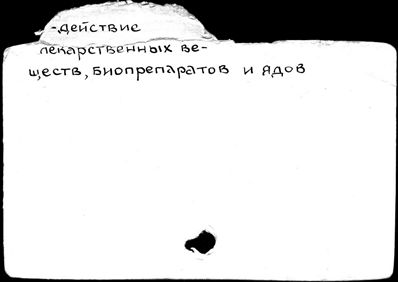 -действие
лекарственных ве-
ществ, биопрепаратов и ядов